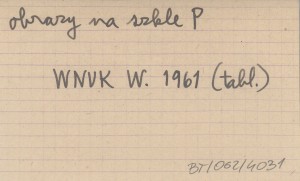 obrazy na szkle P
WNUK W. 1961 (tabl.)
BT/062/4031